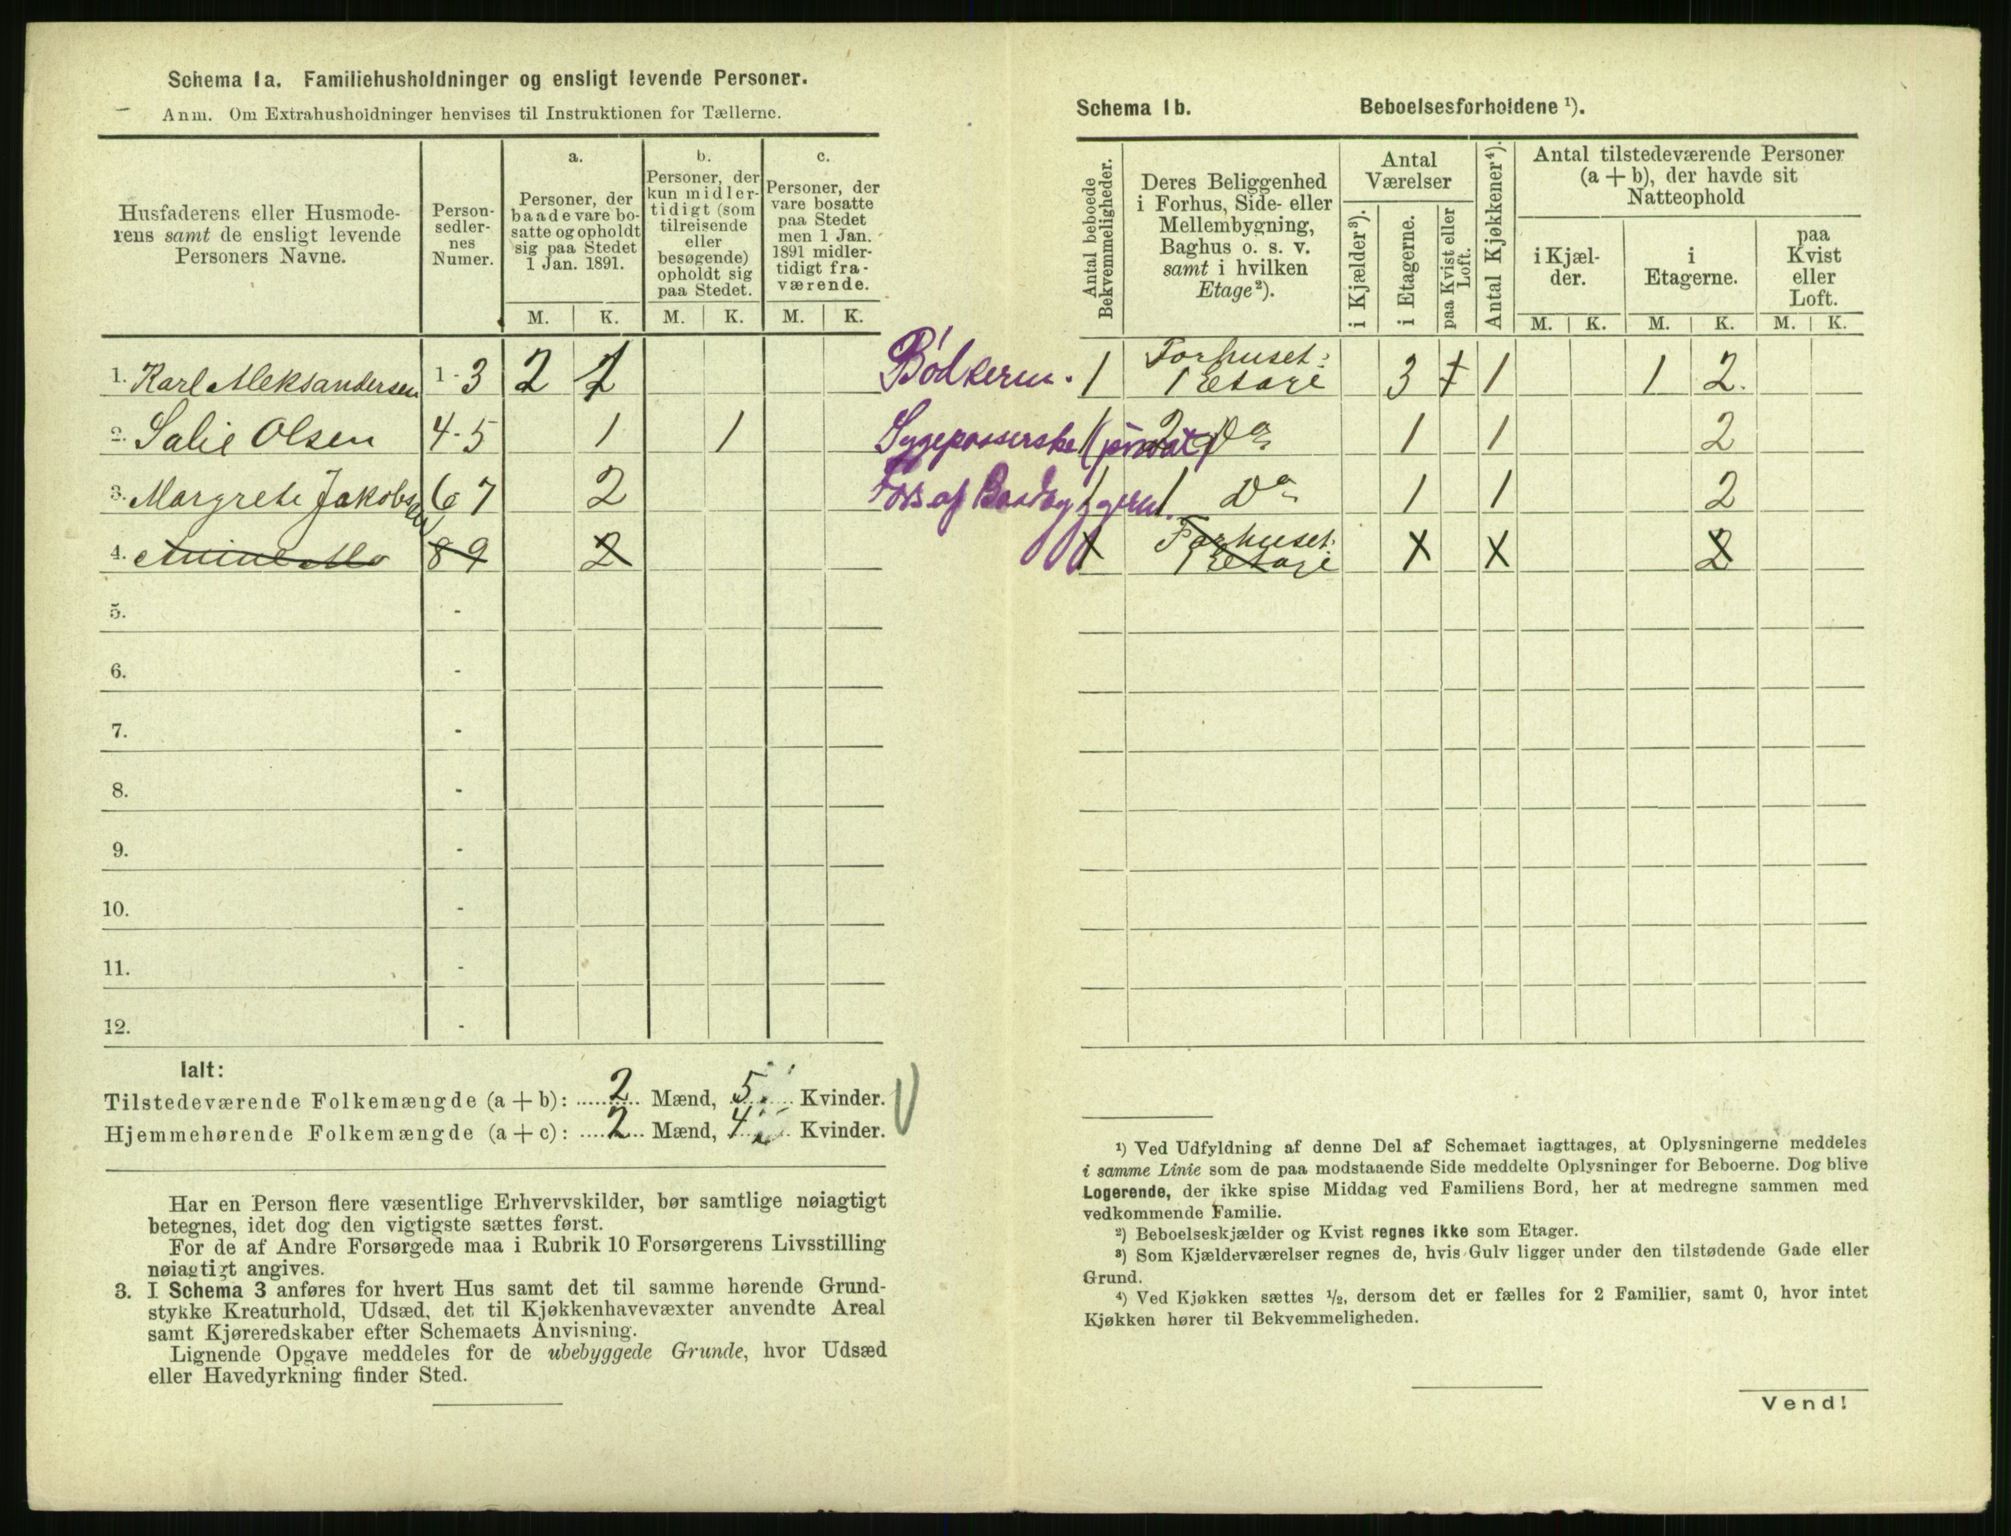 Schema 1a. Familiehusholdninger og ensligt levende Personer.
Anm. Om Extrahusholdninger henvises til Instruktionen for Tællerne.
Husfaderens eller Husmode-
rens samt de ensligt levende
Personers Navne.
Person-
sedler-
nes
Numer.
a.
Personer, der
baade vare bo-
satte og opholdt
sig paa Stedet
1 Jan. 1891.
b.
Personer, der
kun midler-
tidigt (som
tilreisende
eller
besøgende)
opholdt sig
paa Stedet.
c.
Personer, der
vare bosatte
paa Stedet
men 1 Jan.
1891 midler-
tidigt fra-
værende.
M. K. M. K. M. K.
1. Karl Aleksandersen 1-3 2 1
2. Salie Olsen 4-5 1 1
3. Margrete Jakobsen 6 7 2
4. Anine Mo 8 9 2
5. -
6. -
7. -
8. -
9. -
10. -
11. -
12. -
Ialt:
Tilstedeværende Folkemængde (a + b): 2 Mænd, 5 Kvinder.
Hjemmehørende Folkemængde (a + c): 2 Mænd, 4 Kvinder.
Har en Person flere væsentlige Erhvervskilder, bør samtlige nøiagtigt
betegnes, idet dog den vigtigste sættes først.
For de af Andre Forsørgede maa i Rubrik 10 Forsørgerens Livsstilling
nøiagtigt angives.
3. I Schema 3 anføres for hvert Hus samt det til samme hørende Grund-
stykke Kreaturhold, Udsæd, det til Kjøkkenhavevæxter anvendte Areal
samt Kjøreredskaber efter Schemaets Anvisning.
Lignende Opgave meddeles for de ubebyggede Grunde, hvor Udsæd
eller Havedyrkning finder Sted.
Schema 1b. Beboelsesforholdene ¹).
Antal beboede
Bekvemmeligheder.
Deres Beliggenhed
i Forhus, Side- eller
Mellembygning,
Baghus o. s. v.
samt i hvilken
Etage²).
Antal
Værelser
i Kjælder³).
i Etagerne.
paa Kvist eller
Loft.
Antal Kjøkkener⁴).
Antal tilstedeværende Personer
(a + b), der havde sit
Natteophold
i Kjæl-
der.
i
Etagerne.
paa
Kvist
eller
Loft.
M. K. M. K. M. K.
Bødkerm. 1 Forhuset:
1 Etage 3 1 1 2.
Sygepasserske (privat) 1 2 Do 1 1 2
Fors. af 1 1 Do 1 1 2
1 Forhuset.
1 Etage 2
¹) Ved Udfyldning af denne Del af Schemaet iagttages, at Oplysningerne meddeles
i samme Linie som de paa modstaaende Side meddelte Oplysninger for Beboerne. Dog blive
Logerende, der ikke spise Middag ved Familiens Bord, her at medregne sammen med
vedkommende Familie.
²) Beboelseskjælder og Kvist regnes ikke som Etager.
³) Som Kjælderværelser regnes de, hvis Gulv ligger under den tilstødende Gade eller
Grund.
⁴) Ved Kjøkken sættes ½, dersom det er fælles for 2 Familier, samt 0, hvor intet
Kjøkken hører til Bekvemmeligheden.
Vend!